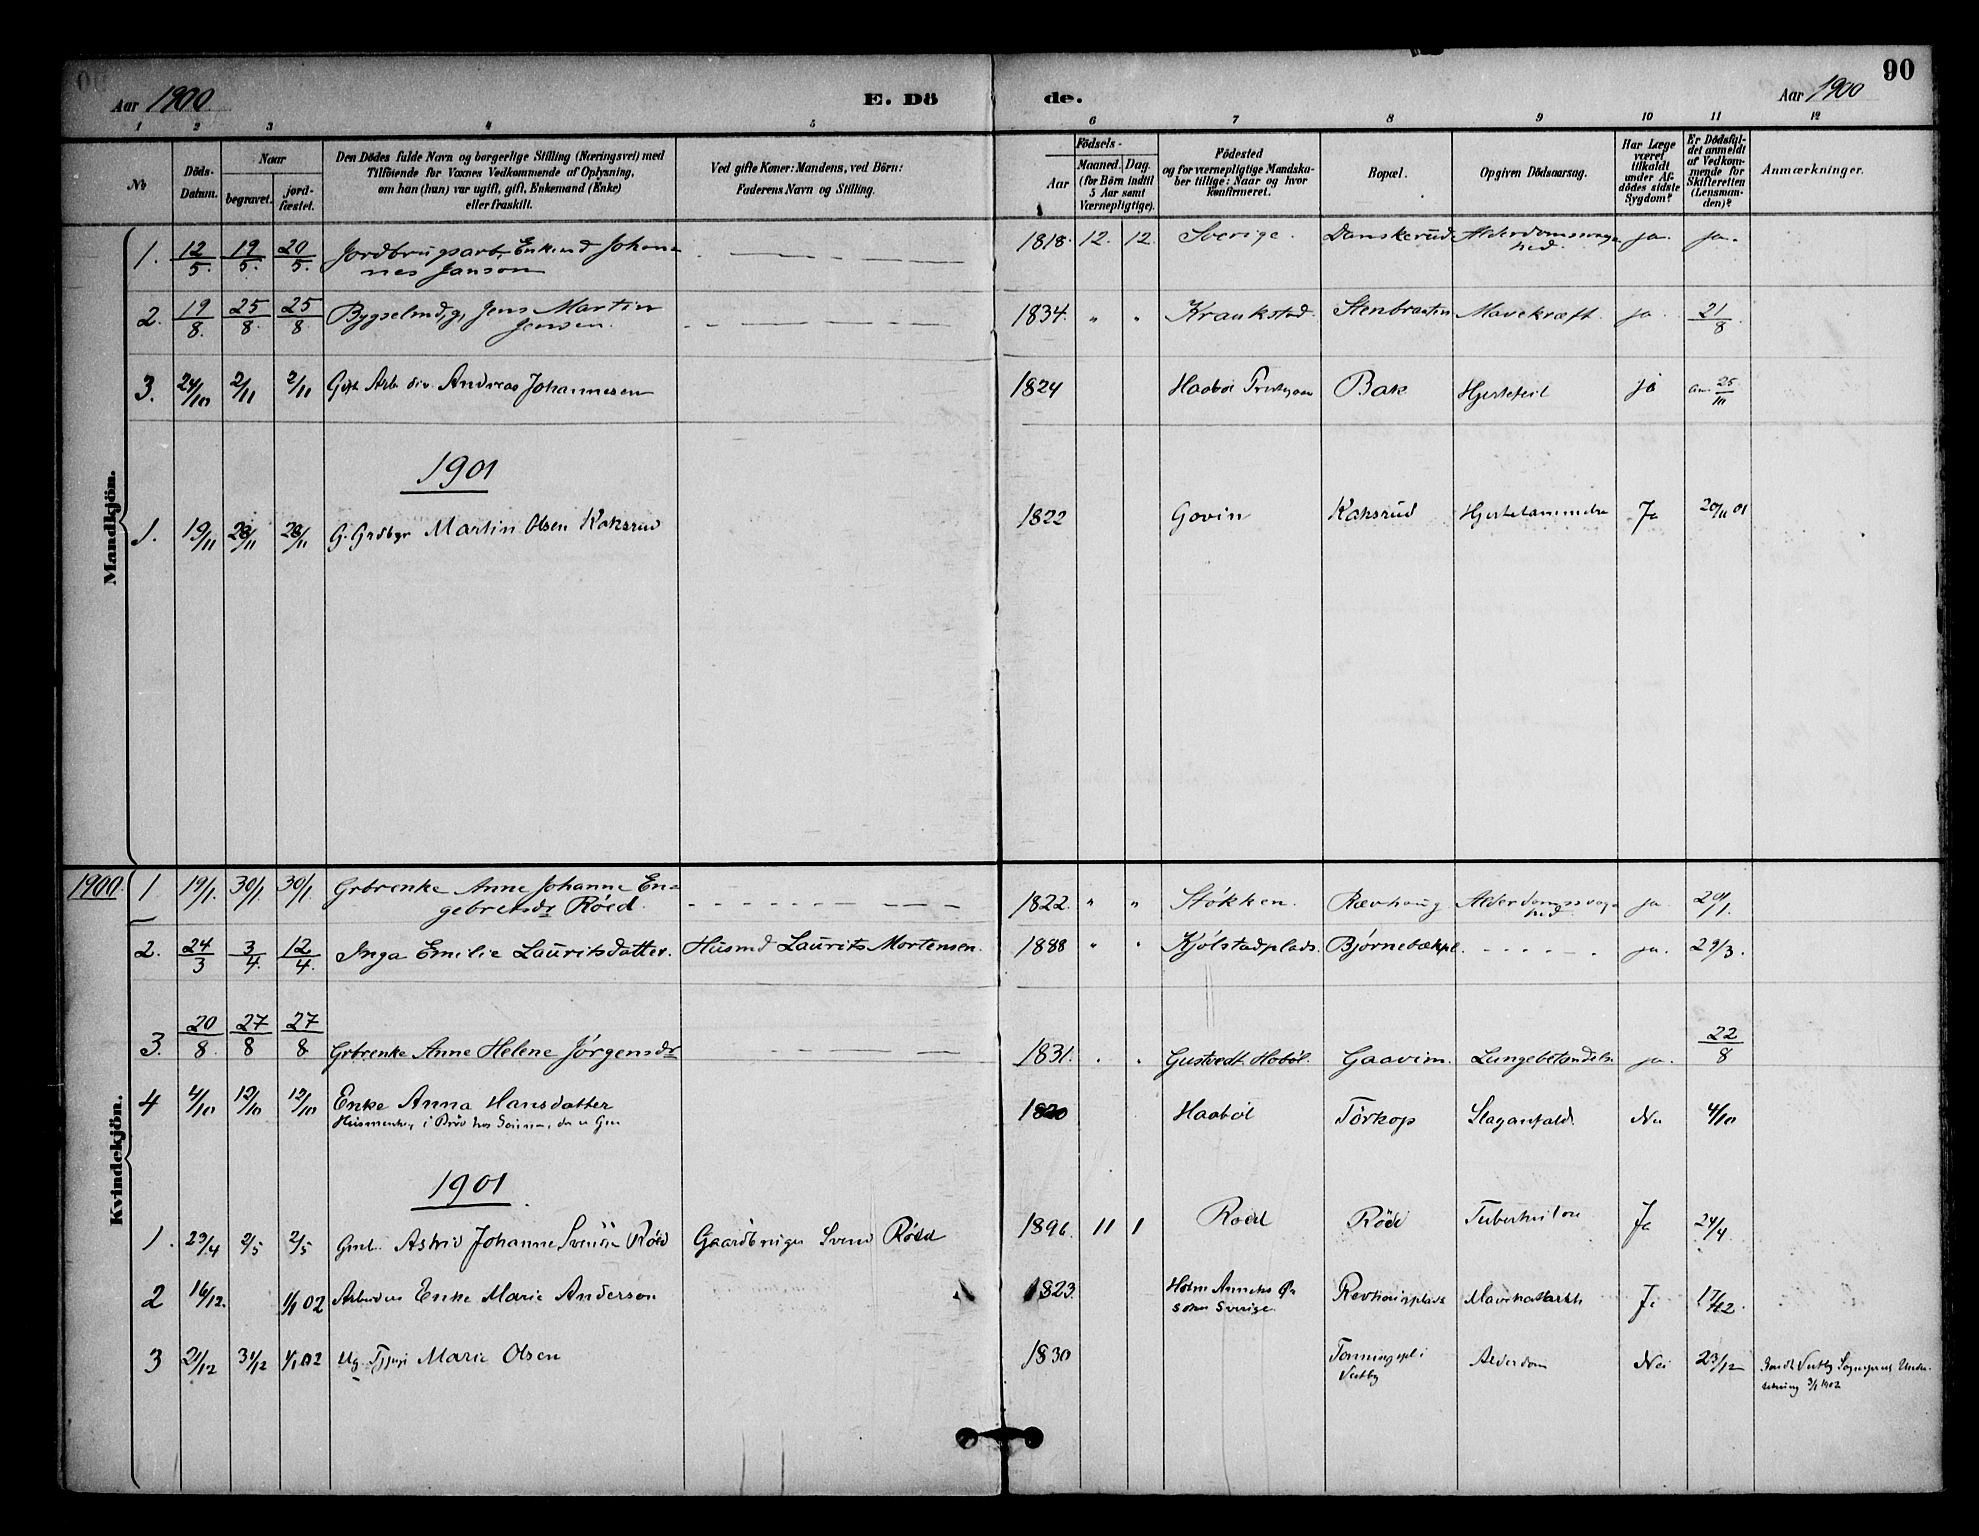 90
Aar 1900
E. Dö
de.
Aar 1900
1 2 3 4 5 6 7 8 9 10 11 12
No
Döds-
Datum.
Naar
begravet.
jord-
fæstet.
Den Dödes fulde Navn og borgerlige Stilling (Næringsvei) med
Tilföiende for Voxnes Vedkommende af Oplysning,
om han (hun) var ugift, gift, Enkemand (Enke)
eller fraskilt.
Ved gifte Koner: Mandens, ved Börn:
Faderens Navn og Stilling.
Födsels-
Aar
Maaned. Dag.
(for Börn indtil
5 Aar samt
Værnepligtige).
Födested
og for værnepligtige Mandska-
ber tillige: Naar og hvor
konfirmeret.
Bopæl.
Opgiven Dödsaarsag.
Har Læge
været
tilkaldt
under Af-
dödes sidste
Sygdom?
Er Dödsfal-
det anmeldt
af Vedkom-
mende for
Skifteretten
(Lensman-
den)?
Anmærkninger.
Mandkjön.
1. 12/5. 19/5. 20/5. Jordbrugsarb. Enkemd Johan-
nes Janson
1818. 12. 12. Sverige. Danskerud Alderdomssvag-
hed. ja. ja.
2. 19/8. 25/8. 25/8. Bygselmd, g, Jens Martin
Jensen.
1834. " " Kraakstad. Stenbraaten Mavekræft. ja. 21/8.
3. 24/10 2/11 2/11 Gift Arb Andreas Johannesen
1824 Haabøl Bak Hjertefeil ja 25/10
1901
1. 19/11 28/11 28/11 G. Grdbgr Martin Olsen Kaksrud
1822 Govin Kaksrud Ja 20/11 01
Kvindekjön.
1900. 1 19/1. 30/1. 30/1. Grbrenke Anne Johanne En-
gebretsdr Röed.
1822. " " Støkken Revhaug Alderdomssvag-
hed. ja. 20/1.
2. 24/3 3/4. 12/4. Inga Emilie Lauritsdatter. Husmd Laurits Mortensen.
1888 " " Kjølstadplads. Bjørnebækpl. ja. 29/3.
3. 20/8. 27/8 27/8 Grbrenke Anne Helene Jørgensdr
1831. " " Gustvedt. Hobøl. Gaavim. Lungebetændelse ja. 22/8
4 4/10 12/10 12/10 Enke Anna Hansdatter
1820 Haabøl Törkop Slaganfald. Nei 4/10
1901
1. 23/4 2/5 2/5 Astrid Johanne Svendsen Röed Gaardbruger Svend Röed
1896. 11 1 Roed Röed Tuberkulose Ja 24/4
2 16/12. 1/1 02 Arbeider Enke Marie Anderson
1823. Sverige. Revhaugplads Ja 17/12.
3 21/12 31/12 1/1 02 Ug. Marie Olsen
1830 Vestby Alderdom Nei 23/12 Vestby
3/1 1902